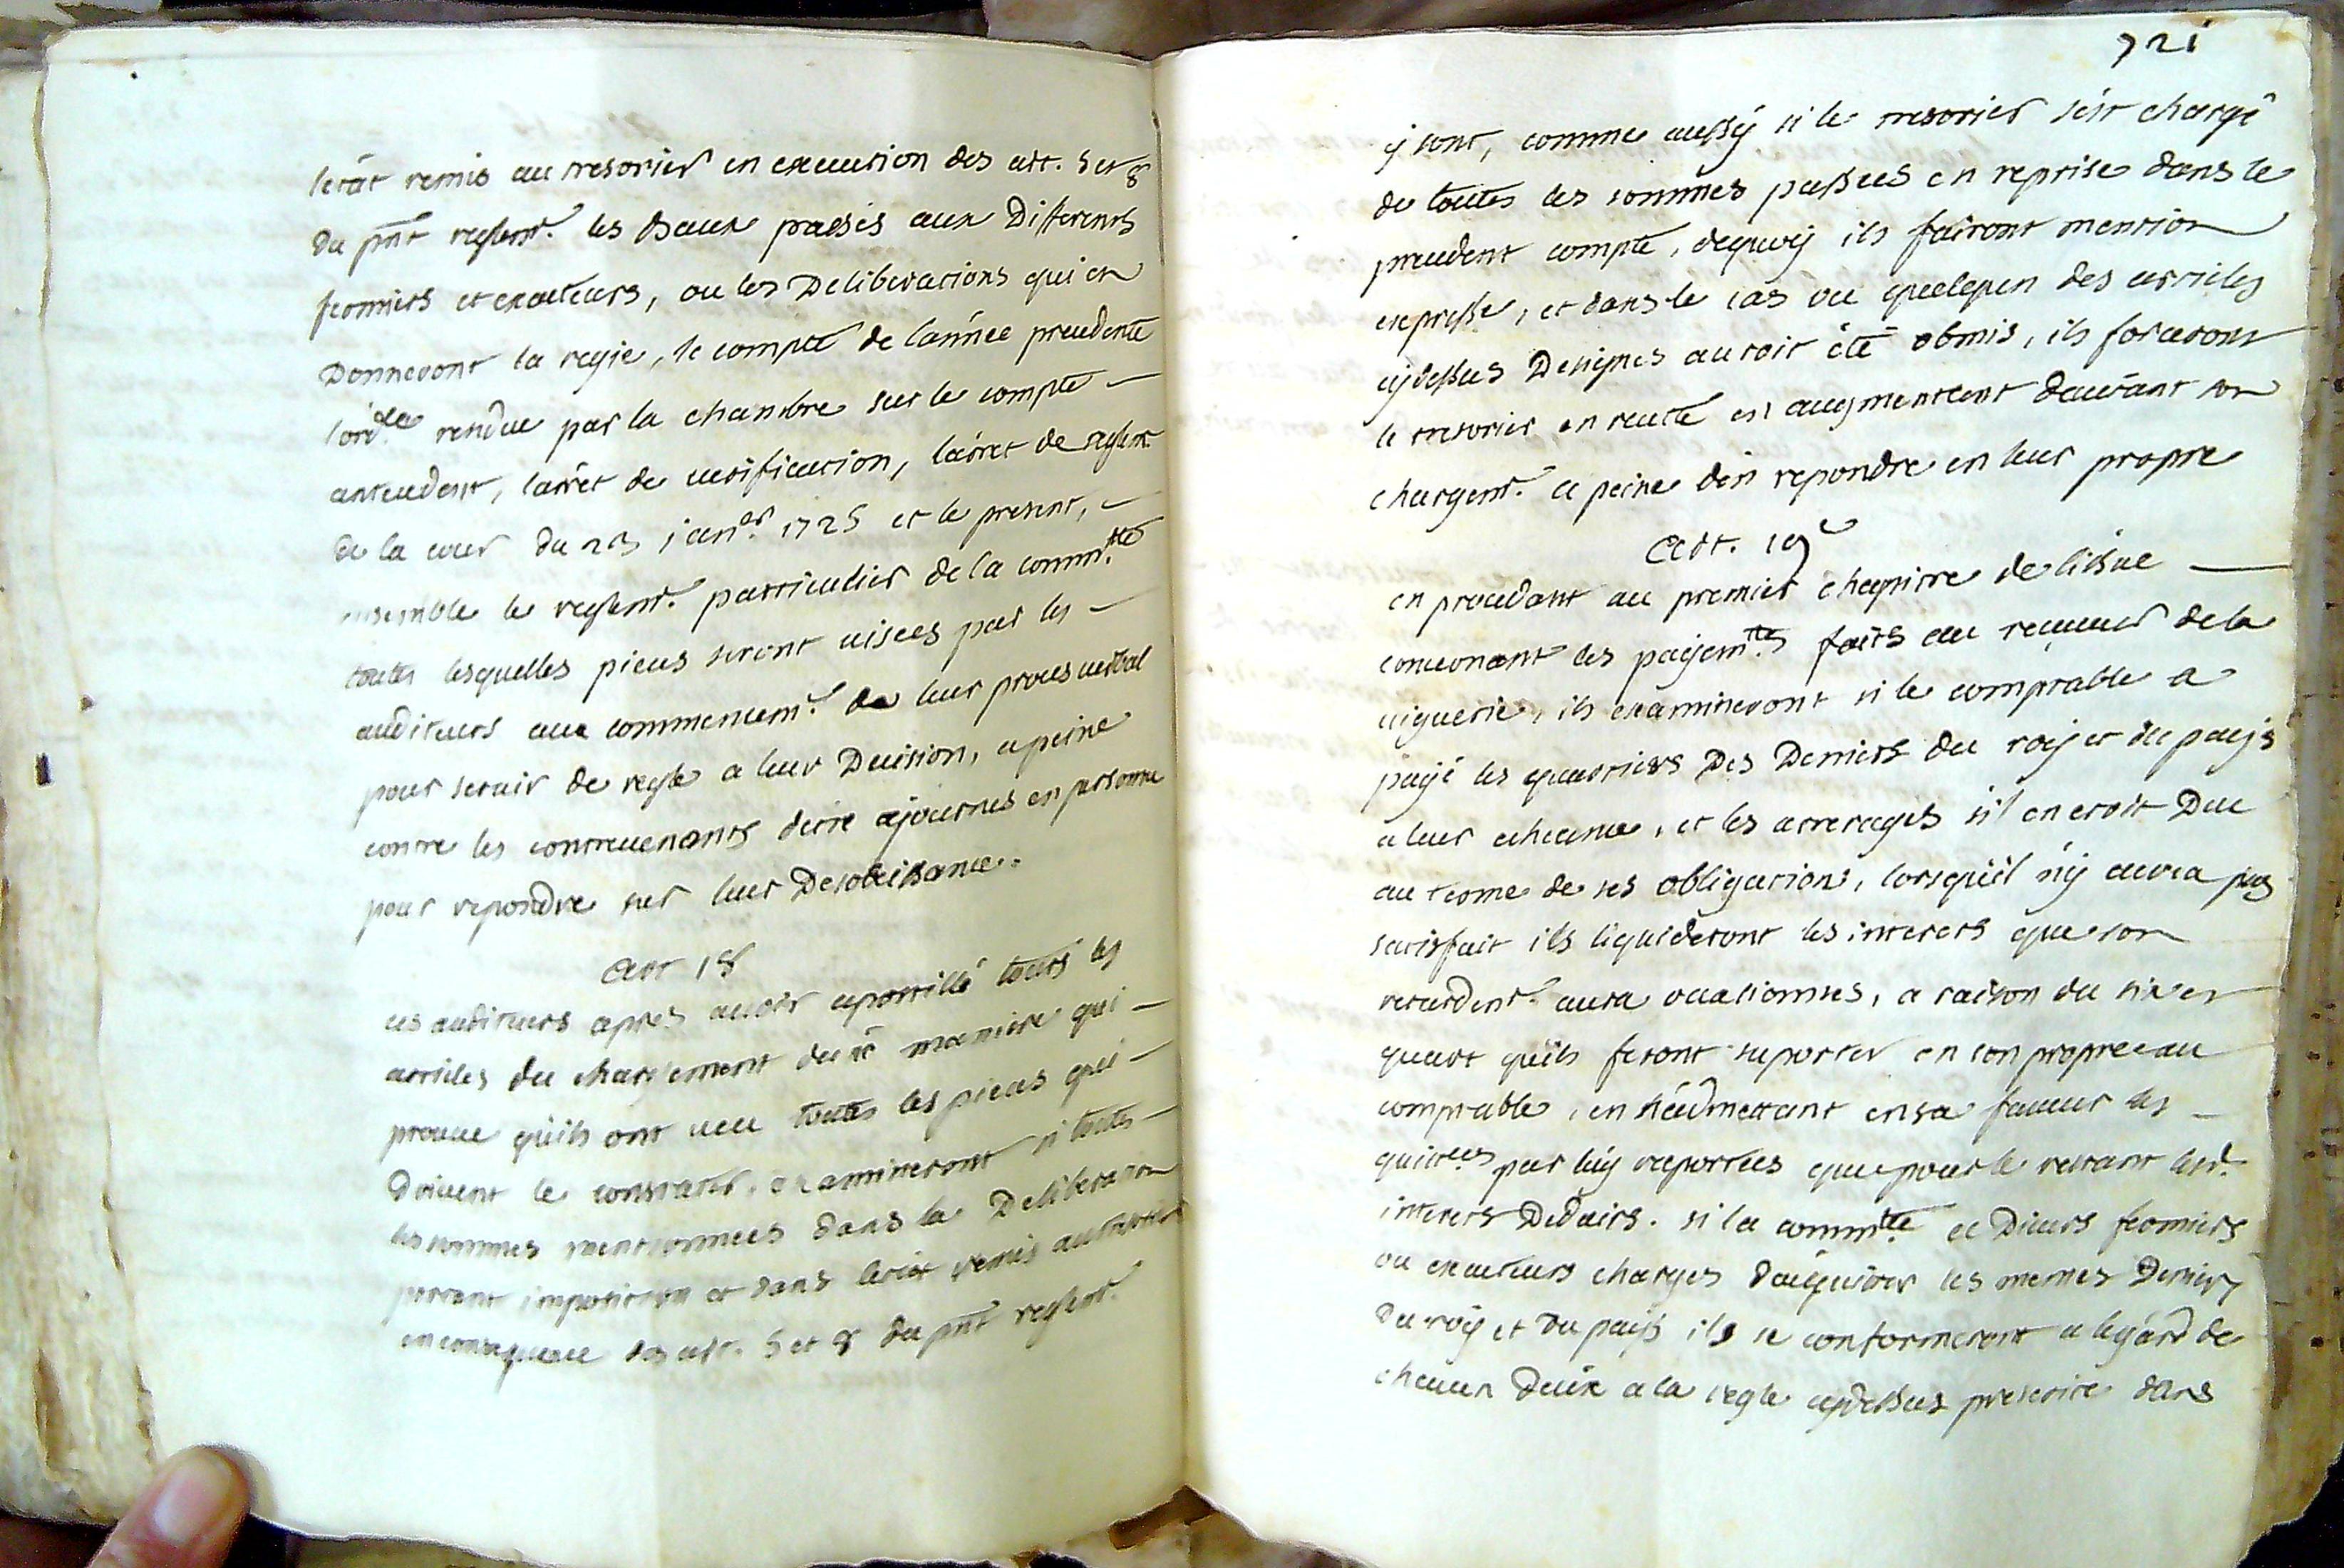 letât remis au tresorier en execution des art. 5 et 8
du pnt reglemt. les Baux passés aux Differents
fermiers et exacteurs, ou les Deliberations qui en
Donneront la regie, le compte de l'année precedente
l'ordce rendue par la chambre sur le compte
antecedent, l'arrêt de verification, l'arret de reglemt
de la cour du 23 janer. 1725 et le present,
ensemble le reglemt. particulier de la commté
toutes lesquelles pieces seront visees par les
auditeurs au commencemt. de leur proces verbal
pour servir de regle a leur Decision, a peine
contre les contrevenants d'etre ajournés en personne
pour repondre sur leur Desobeissance.
Art 18
les auditeurs apres avoir apostillé touts les
articles du chargement de manière qui
prouve qu'ils ont veu toutes les pieces qui
doivent le constater, examineront si toutes
les sommes mentionnees dans la Deliberation
portant imposition et dans letat remis au tresorier
en consequence des art. 5 et 8 du pnt reglemt.
721
y sont, comme aussy si le tresorier s'est chargé
de toutes les sommes passees en reprise dans le
precedent compte, dequoy ils fairont mention
expresse, et dans le cas ou quelqu'un des articles
cydessus Designés auroit été obmis, ils forceront
le tresorier en recette en augmentant d'autant son
chargemt. a peine d'en repondre en leur propre
Art. 19e
en procedant au premier chapitre de l'issue
concernant les payemts faits au receveur de la
viguerie, ils examineront si le comptable a
payé les quartiers Des Deniers du roy et du pays
a leur echeance, et les arrerages s'il en etoit Deu
au terme de ses obligations, lorsqu'il n'y aura pas
satisfait ils liquideront les interets que son
retardemt. aura occasionnés, a raison du six et
quart qu'ils feront suporter en son propre au
comptable, en n'admettant en sa faveur les
quittces par luy raportées que pour le restant lesd.
interets Deduits. si la commté a Divers fermiers
ou exacteurs chargés d'acquitter les memes Deniers
du roy et du pays ils se conformeront a l'egard de
chacun D'eux a la regle cydessus prescrite dans